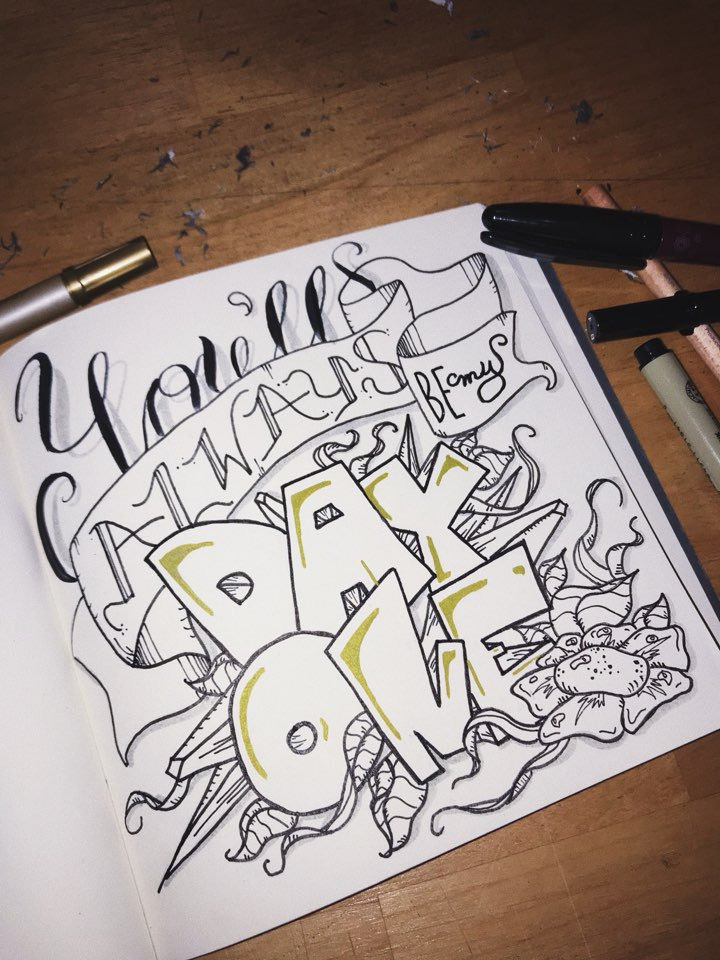 You'll
ALWAYS
BE my
DAY
ONE